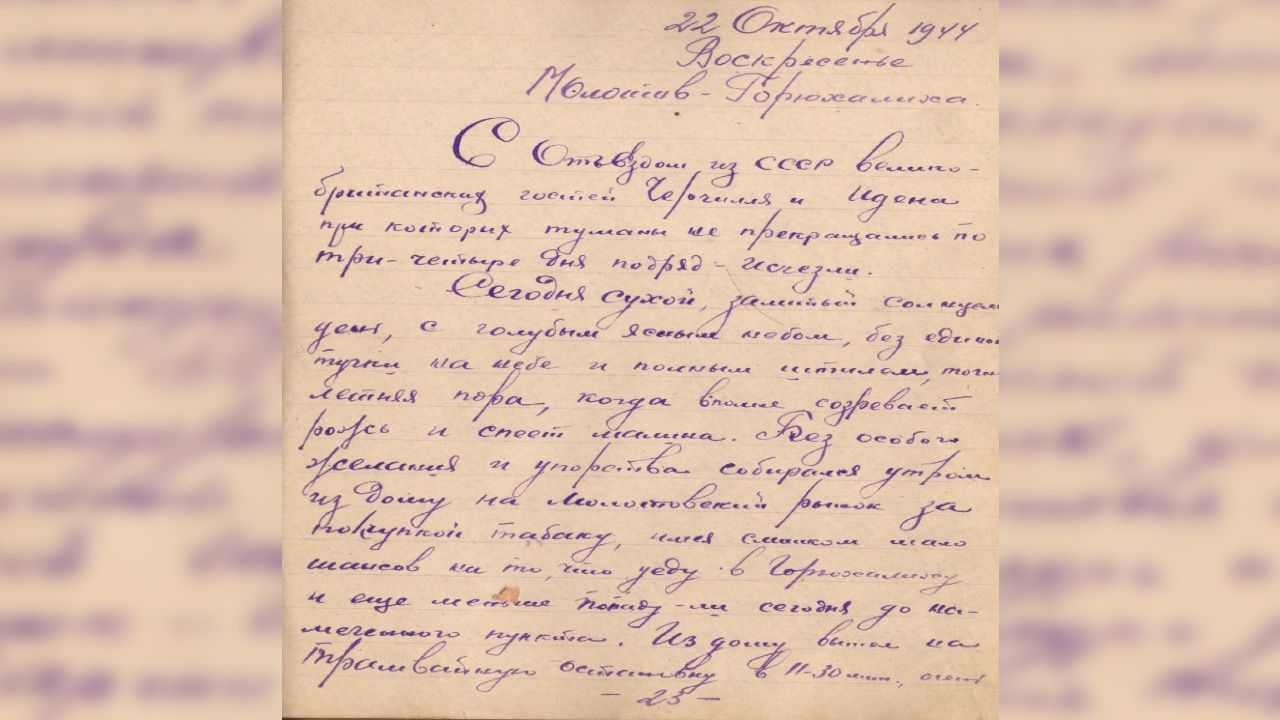 22 Октября 1944
Воскресенье
Молотов - Горюхалиха.
С Отъездом из СССР велико-
британских гостей Черчилля и Идена
при которых туманы не прекращались по
три-четыре дня подряд - исчезли.
Сегодня сухой, залитый солнцем
день, с голубым ясным небом, без единой
тучки на небе и полным штилем, точно
летняя пора, когда вполне созревает
рожь и спеет малина. Без особого
желания и упорства собирался утром
из дому на Молотовский рынок за
покупкой табаку, имея слишком мало
шансов на то, что уеду в Горюхалиху
и еще меньше попаду-ли сегодня до на-
меченного пункта. Из дому вышел на
трамвайную остановку в 11-30 мин.,
- 23 -